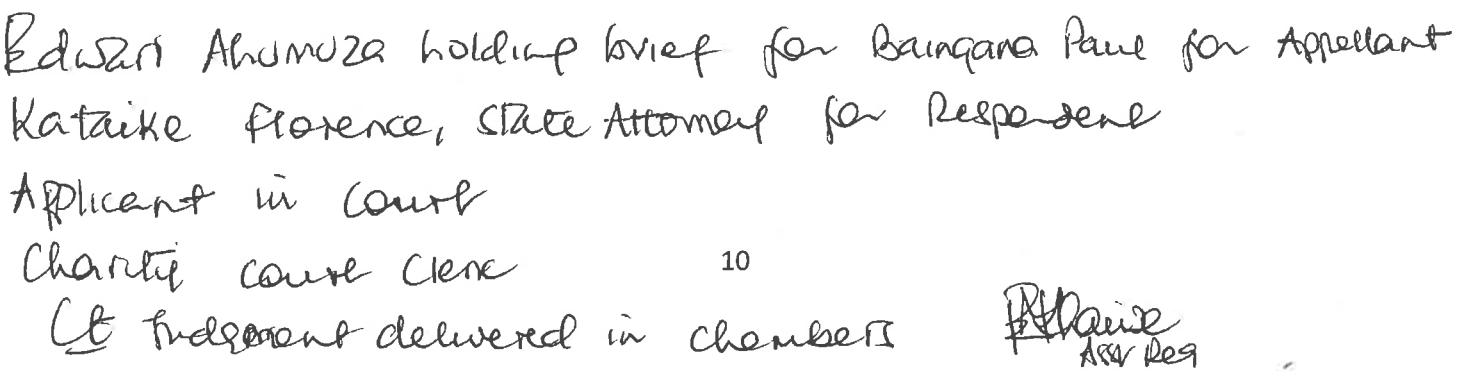 Edward Ahumuza holding brief for Baingana Paul for Appellant
Kataike Florence, State Attorney for Respondent
Applicant in court
Charity court clerk
10
Ct Judgment delivered in chambers
Asst Reg